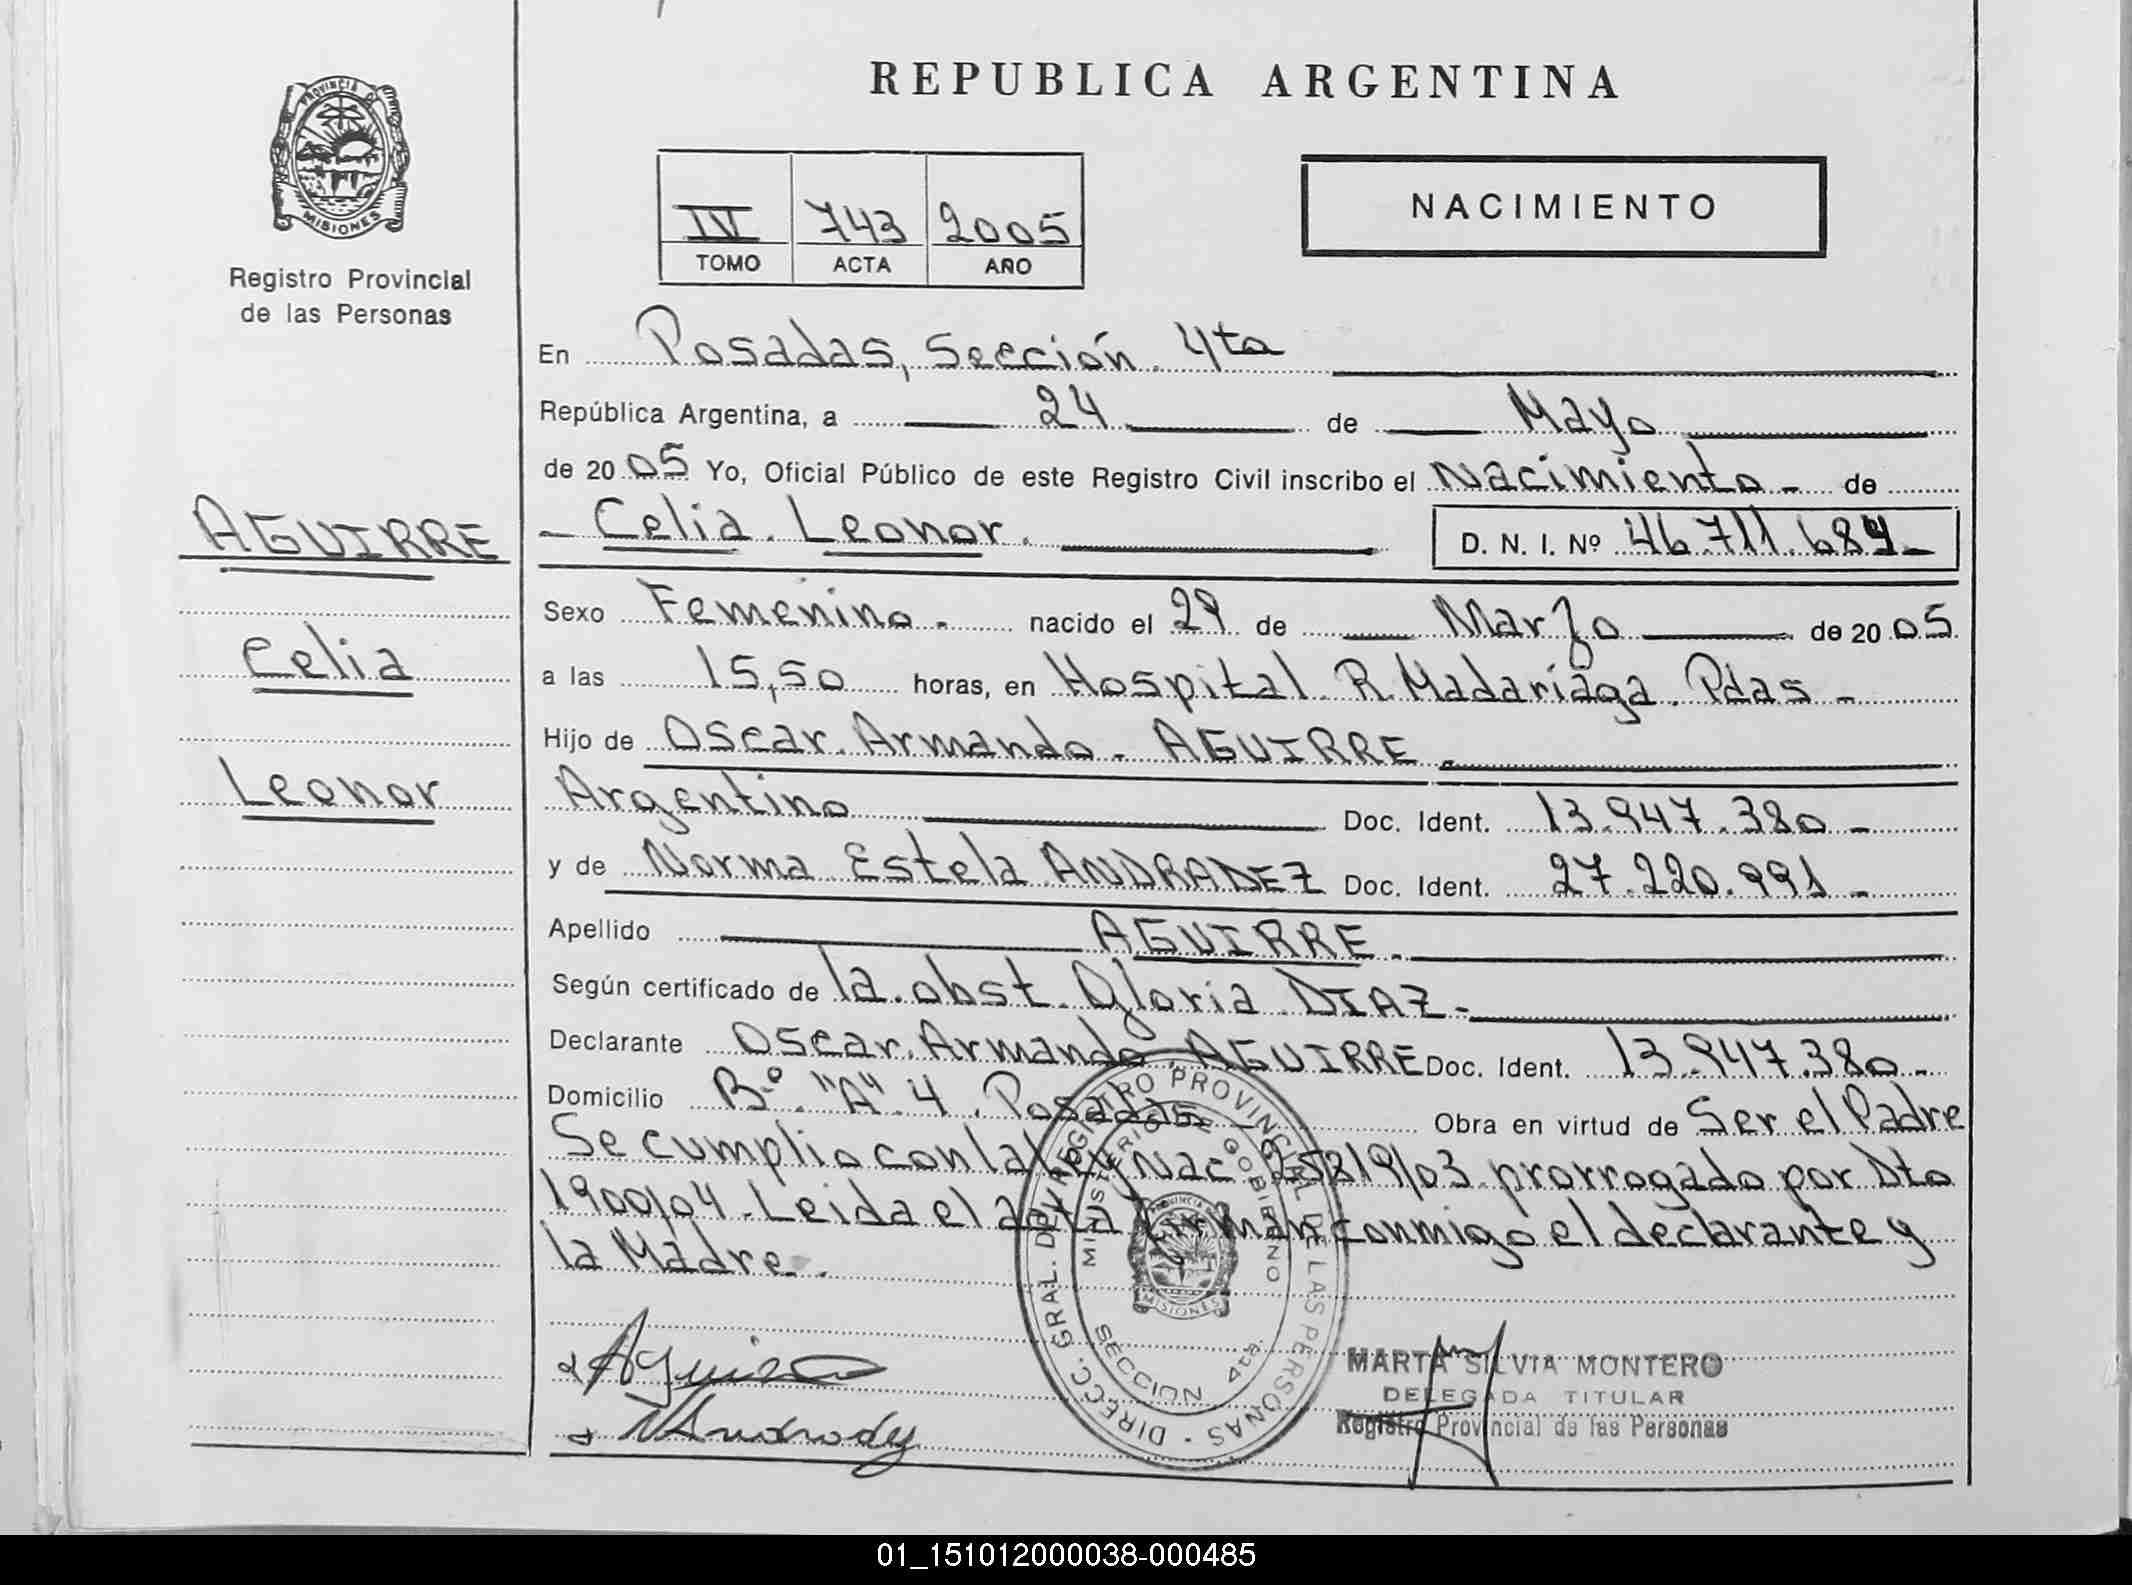 REPUBLICA ARGENTINA
PROVINCIA DE MISIONES
Registro Provincial
de las Personas
IV 743 2005
TOMO ACTA AÑO
NACIMIENTO
En Posadas, Sección 4ta
República Argentina, a 24 de Mayo
de 2005 Yo, Oficial Público de este Registro Civil inscribo el Nacimiento - de
AGUIRRE
Celia
Leonor
- Celia Leonor. D. N. I. Nº 46.711.684 -
Sexo Femenino. nacido el 29 de Marzo de 2005
a las 15,50 horas, en Hospital R. Madariaga. Pdas -
Hijo de Oscar Armando - AGUIRRE
Argentino Doc. Ident. 13.947.380 -
y de Norma Estela ANDRADEZ Doc. Ident. 27.220.991 -
Apellido AGUIRRE.
Según certificado de la obst. Gloria DIAZ -
Declarante Oscar Armando AGUIRRE Doc. Ident. 13.947.380 -
Domicilio Bº "A" 4. Posadas - Obra en virtud de Ser el Padre
Se cumplio con la Ley Nac 25819/03 prorrogado por Dto
1900/04. Leida el acta firman conmigo el declarante y
la Madre.
DIRECC. GRAL. DEL REGISTRO PROVINCIAL DE LAS PERSONAS
MINISTERIO DE GOBIERNO
PROVINCIA
MISIONES
SECCION 4ta.
MARTA SILVIA MONTERO
DELEGADA TITULAR
Registro Provincial de las Personas
01_151012000038-000485